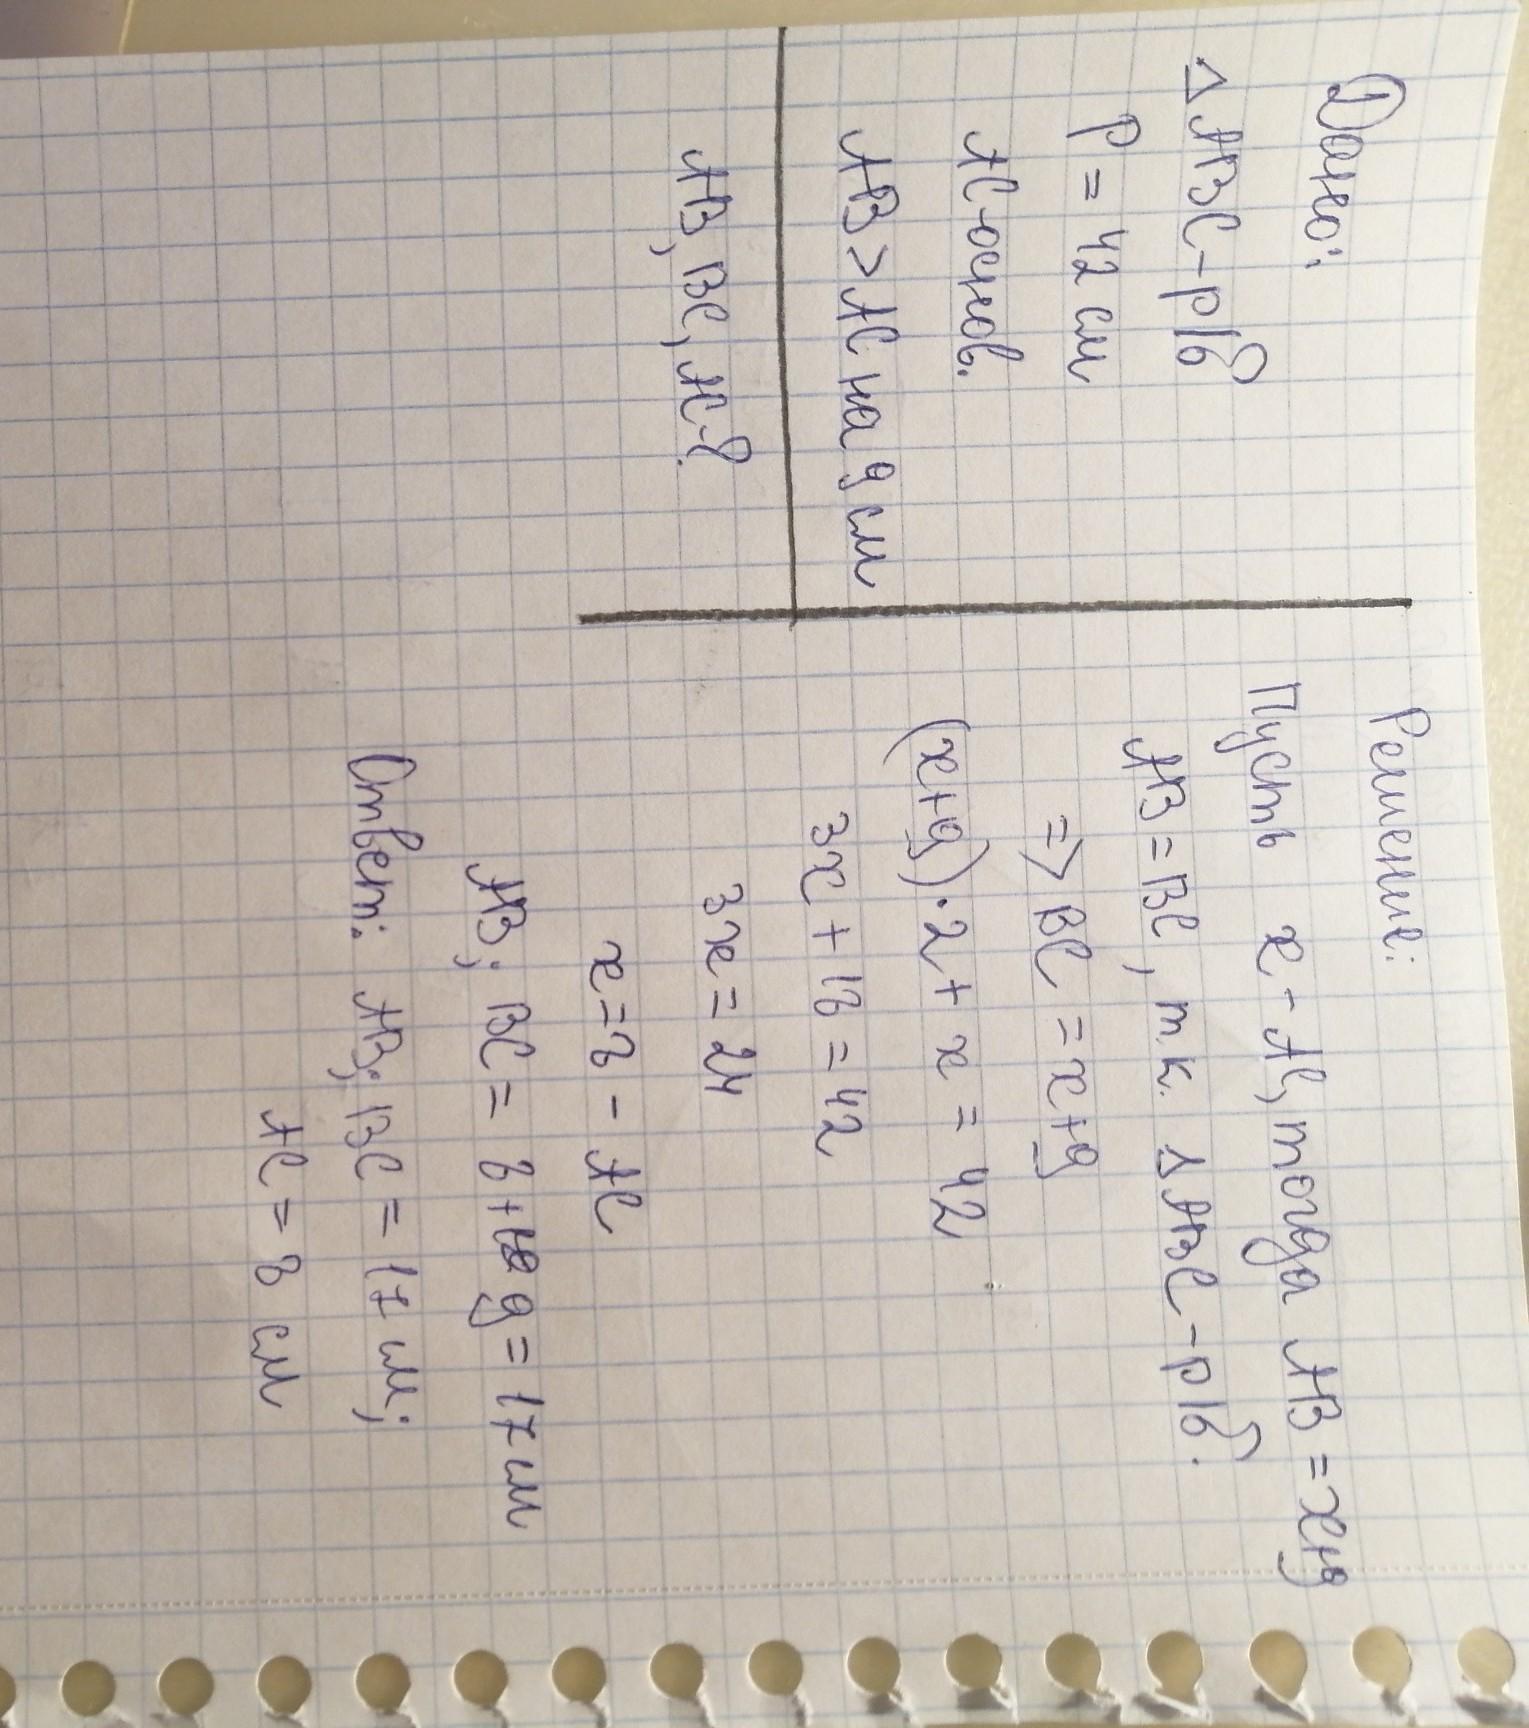 Дано:
△ ABC - р/б
P = 42 см
AC - основ.
AB > AC на 9 см
AB, BC, AC - ?
Решение:
Пусть x - AC, тогда AB = x+9
AB = BC, т.к. △ ABC - р/б.
=> BC = x+9
(x+9)·2 + x = 42
3x + 18 = 42
3x = 24
x = 8 - AC
AB; BC = 8 + 9 = 17 см
Ответ: AB; BC = 17 см;
AC = 8 см